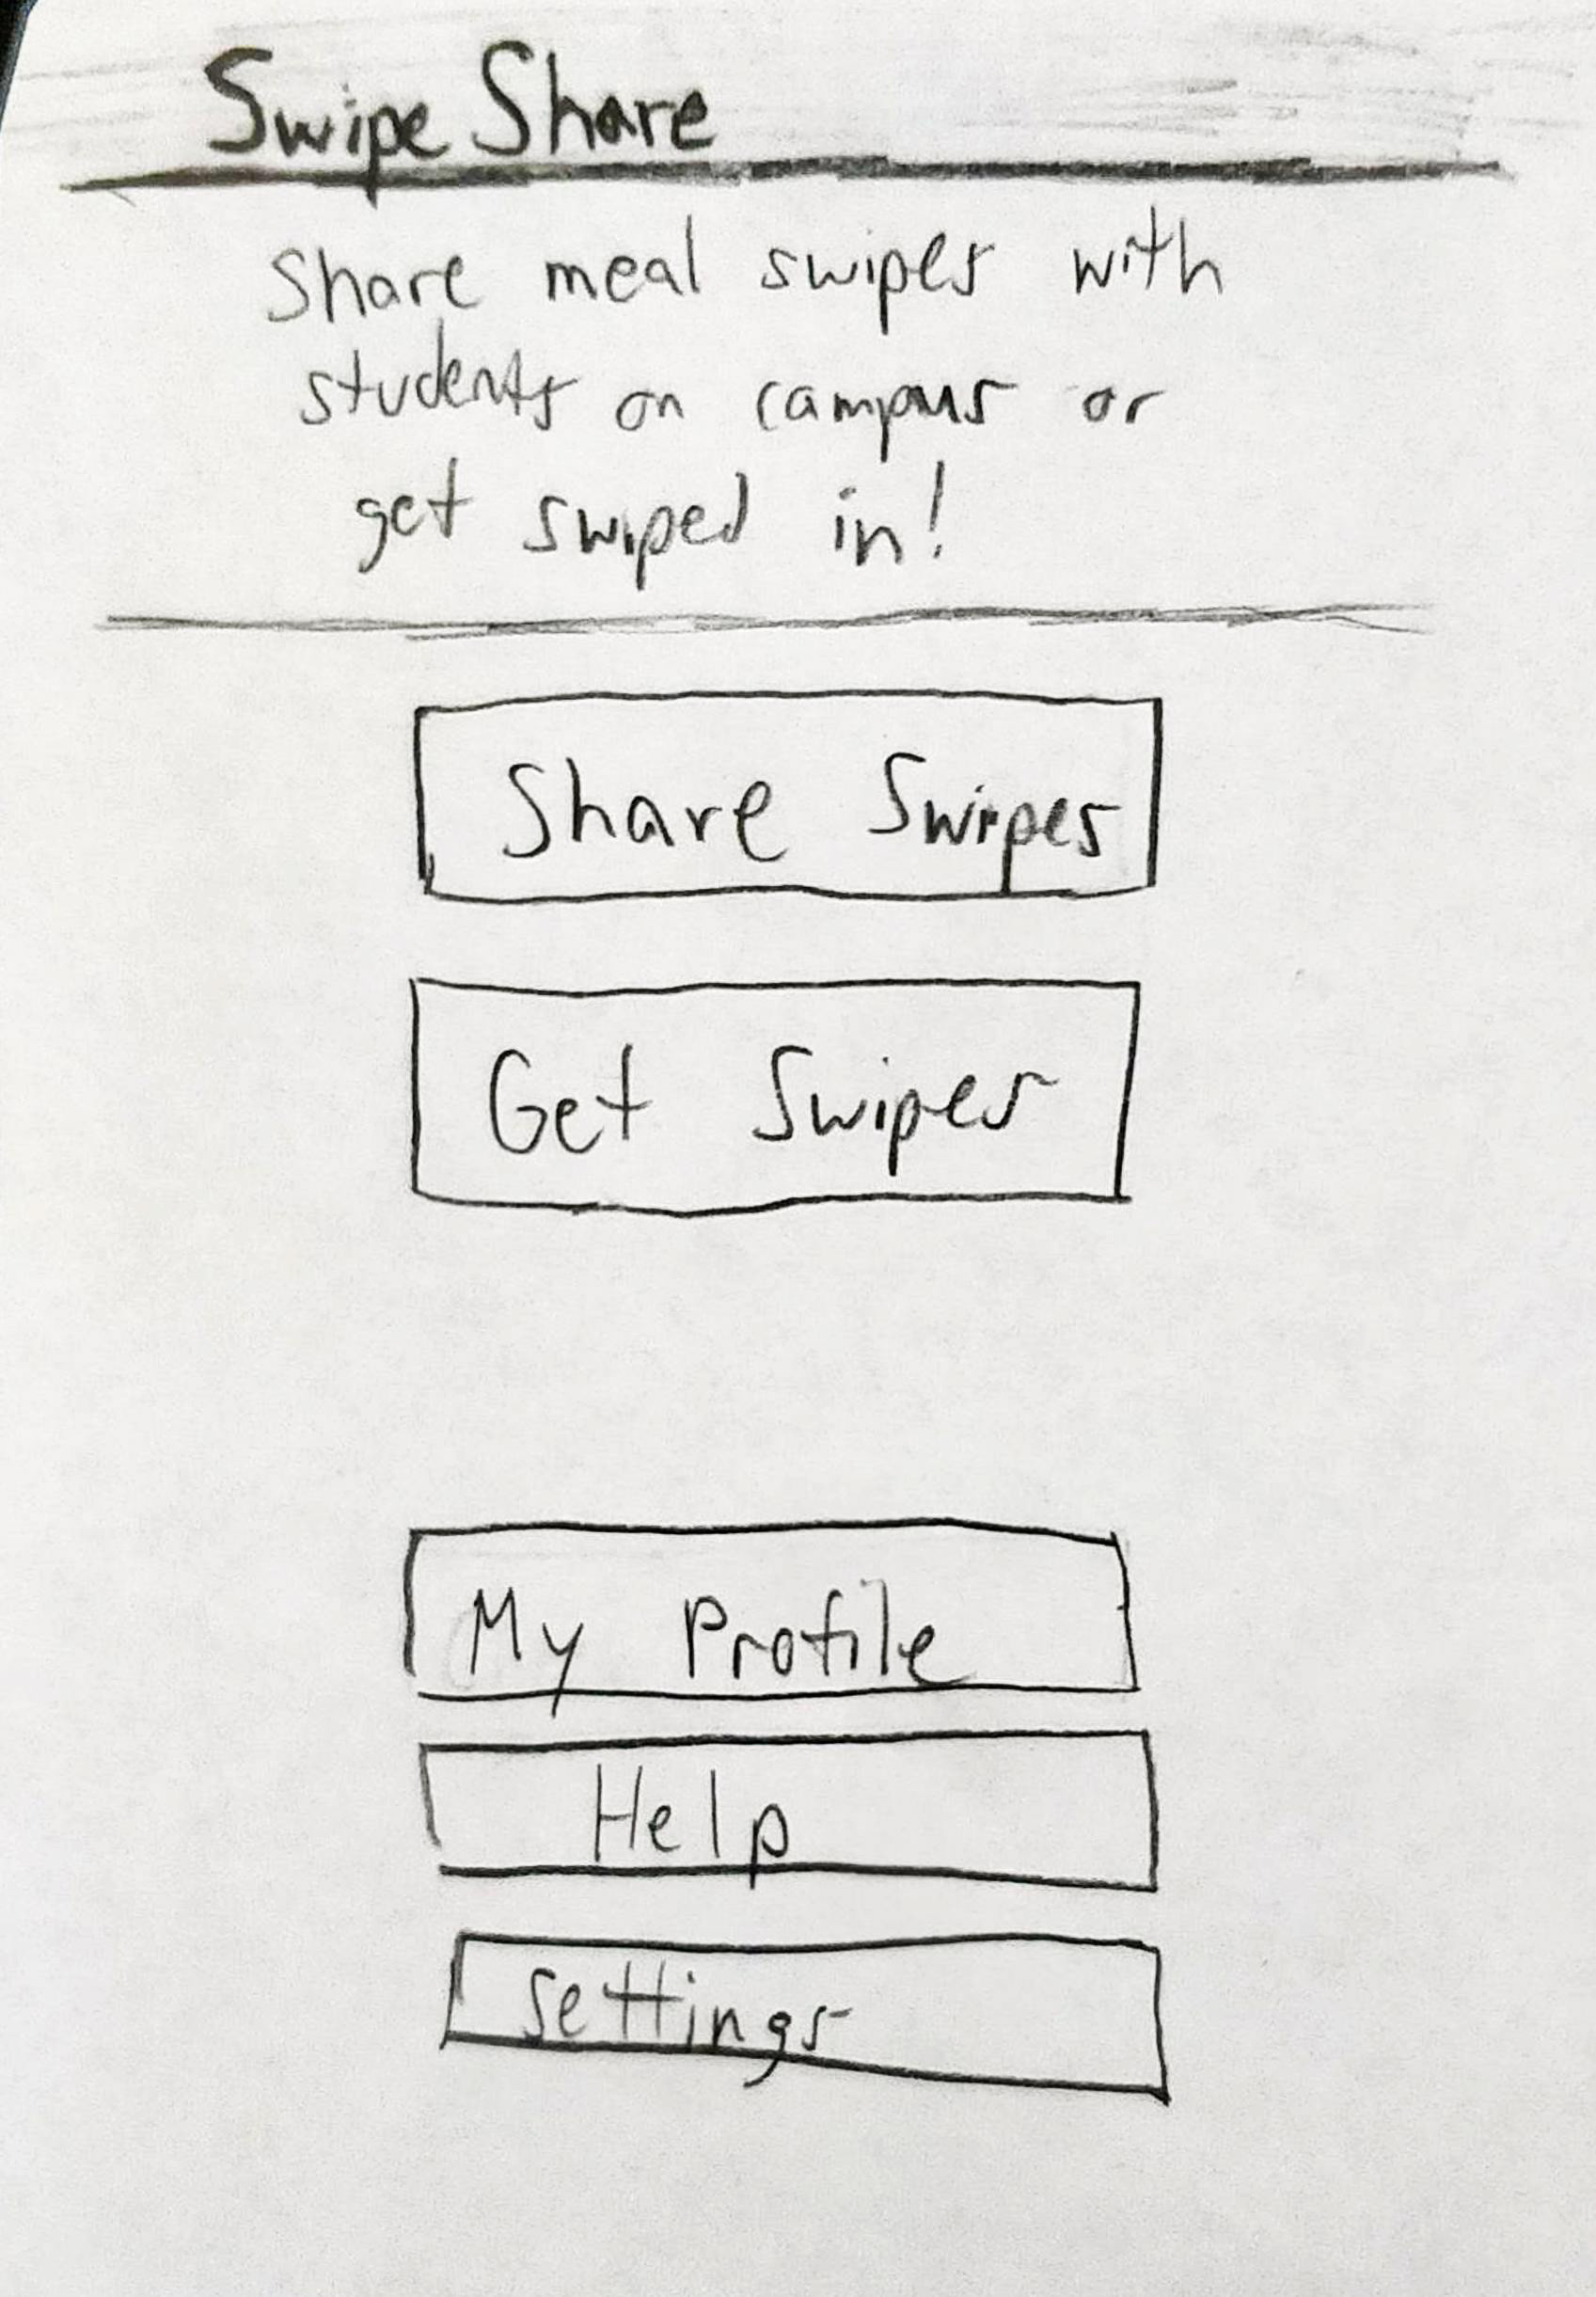 Swipe Share
Share meal swipes with
students on campus or
get swiped in!
Share Swipes
Get Swipes
My Profile
Help
Settings